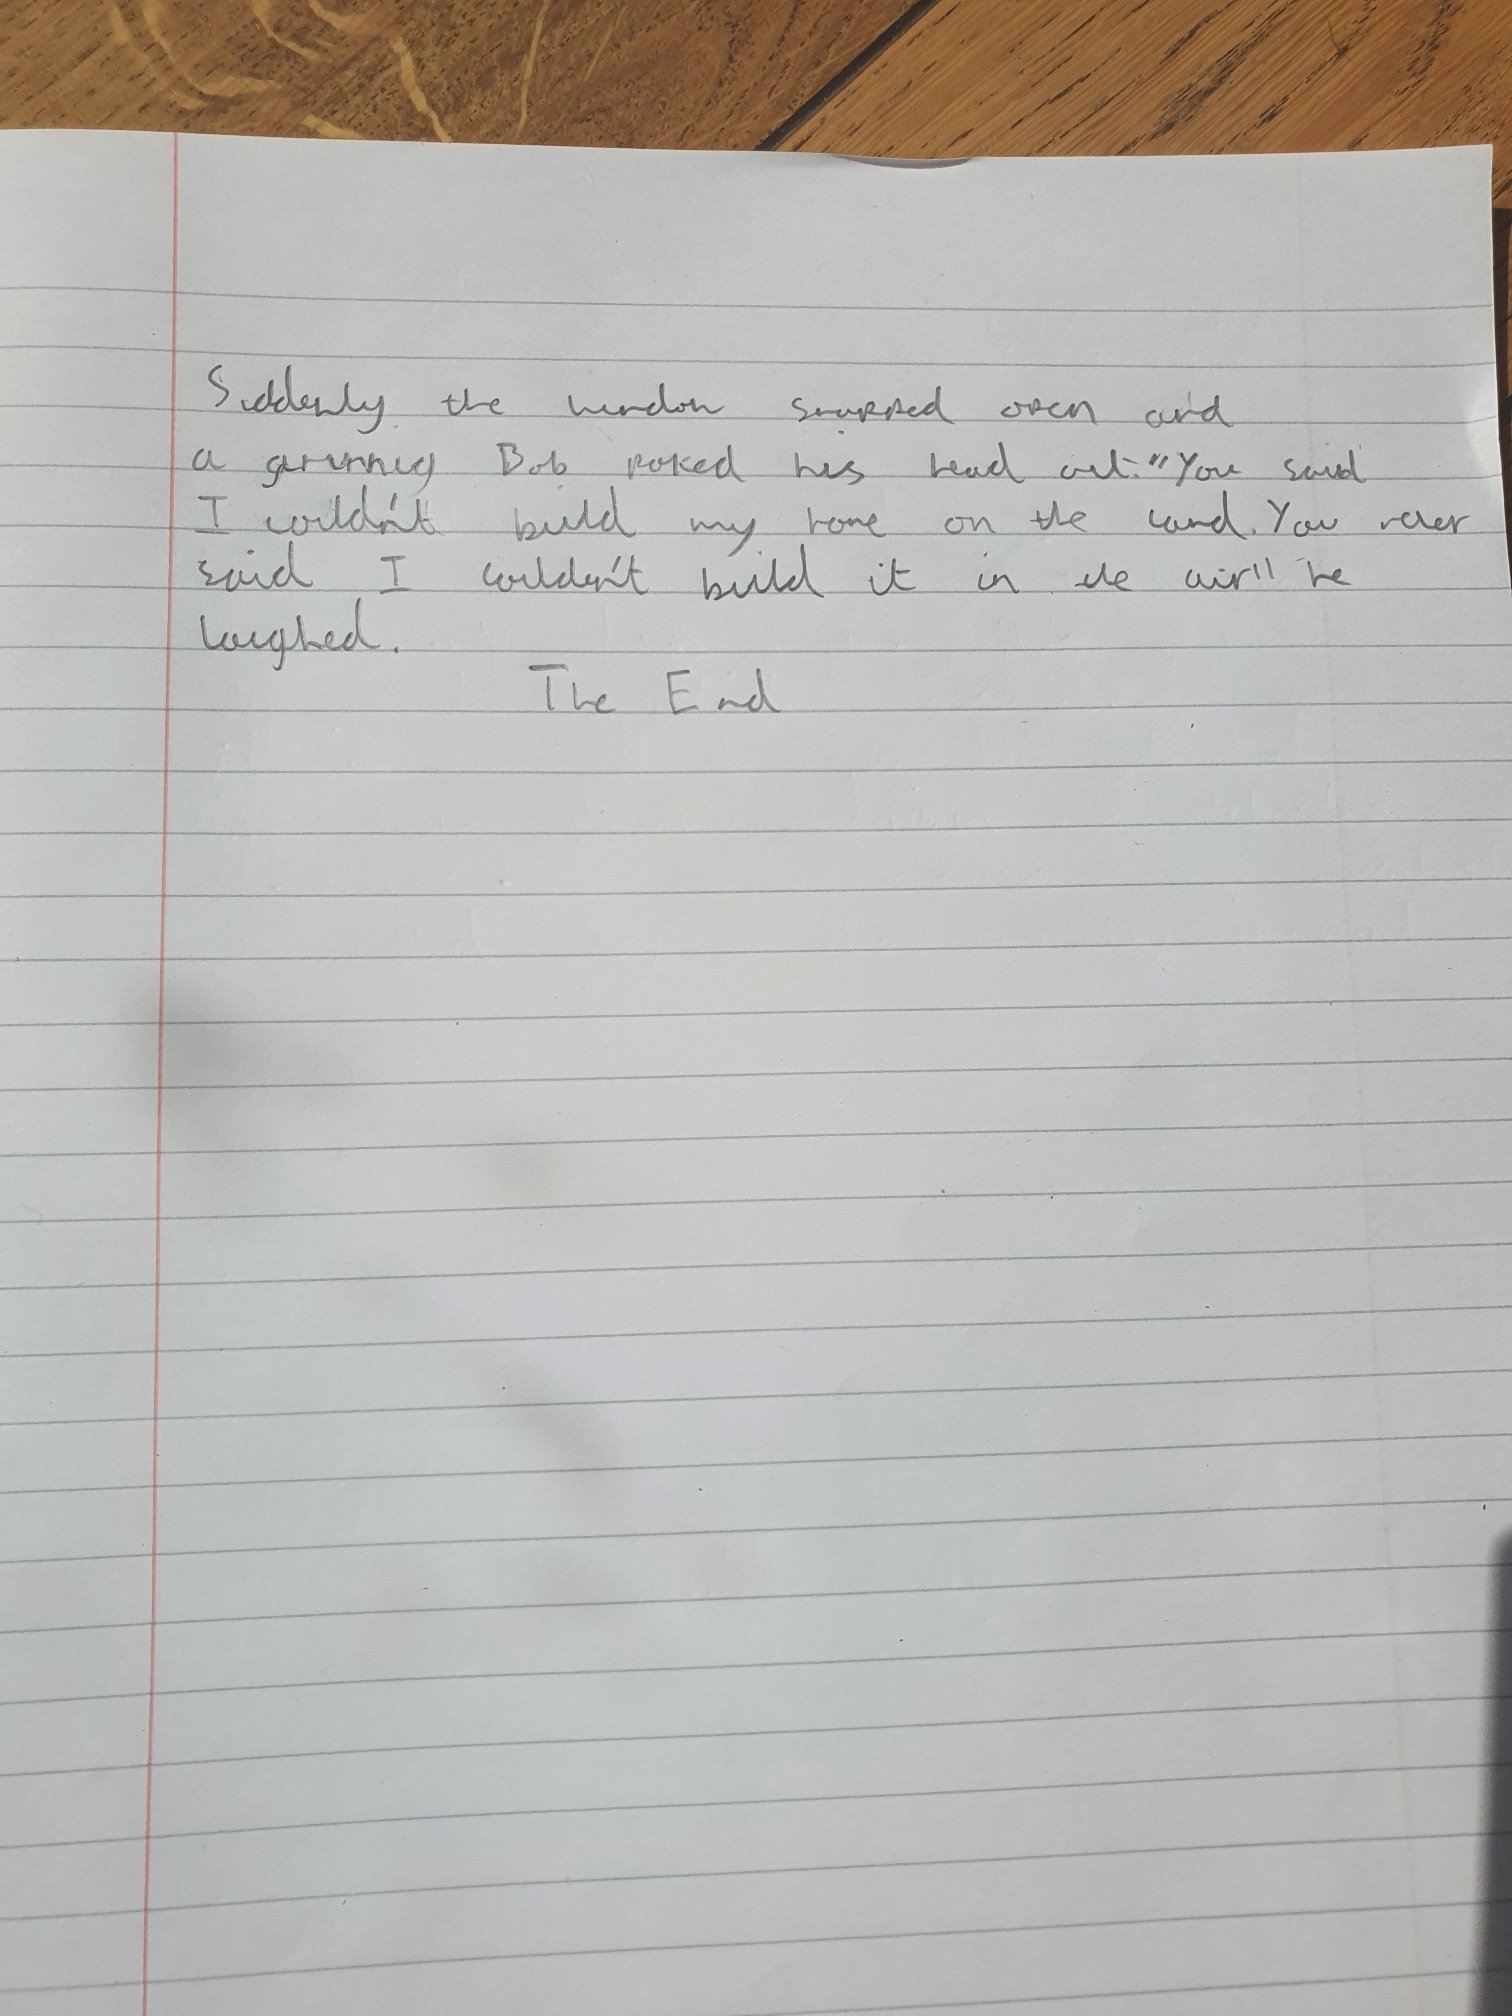 Suddenly the window snapped open and
a grinning Bob poked his head out. "You said
I couldn't build my home on the land. You never
said I couldn't build it in the air" he
laughed.
The End